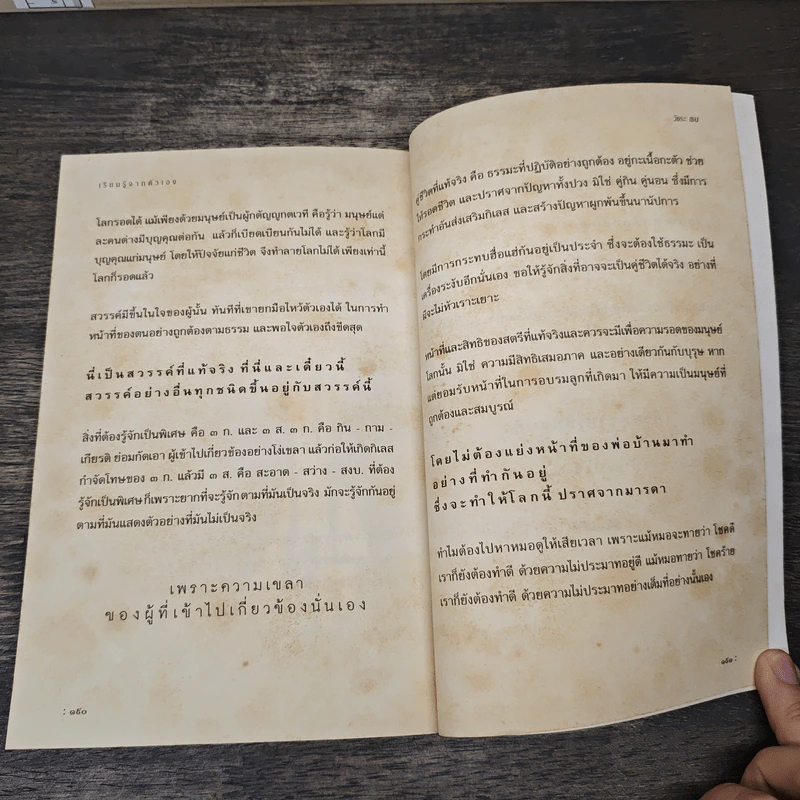 เรียนรู้จากตัวเอง
โลกรอดได้ แม้เพียงด้วยมนุษย์เป็นผู้กตัญญูกตเวที คือรู้ว่า มนุษย์แต่
ละคนต่างมีบุญคุณต่อกัน แล้วก็เบียดเบียนกันไม่ได้ และรู้ว่าโลกมี
บุญคุณแก่มนุษย์ โดยให้ปัจจัยแก่ชีวิต จึงทำลายโลกไม่ได้ เพียงเท่านี้
โลกก็รอดแล้ว
สวรรค์มีขึ้นในใจของผู้นั้น ทันทีที่เขายกมือไหว้ตัวเองได้ ในการทำ
หน้าที่ของตนอย่างถูกต้องตามธรรม และพอใจตัวเองถึงขีดสุด
นี่เป็นสวรรค์ที่แท้จริง ที่นี่และเดี๋ยวนี้
สวรรค์อย่างอื่นทุกชนิดขึ้นอยู่กับสวรรค์นี้
สิ่งที่ต้องรู้จักเป็นพิเศษ คือ ๓ ก. และ ๓ ส. ๓ ก. คือ กิน - กาม -
เกียรติ ย่อมกัดเอา ผู้เข้าไปเกี่ยวข้องอย่างโง่เขลา แล้วก่อให้เกิดกิเลส
กำจัดโทษของ ๓ ก. แล้วมี ๓ ส. คือ สะอาด - สว่าง - สงบ. ที่ต้อง
รู้จักเป็นพิเศษก็เพราะยากที่จะรู้จัก ตามที่มันเป็นจริง มักจะรู้จักกันอยู่
ตามที่มันแสดงตัวอย่างที่มันไม่เป็นจริง
เพราะความเขลา
ของผู้ที่เข้าไปเกี่ยวข้องนั่นเอง
: ๑๙๐
วัชระ
คู่ชีวิตที่แท้จริง คือ ธรรมะที่ปฏิบัติอย่างถูกต้อง อยู่กะเนื้อกะตัว ช่วย
ให้รอดชีวิต และปราศจากปัญหาทั้งปวง มิใช่ คู่กิน คู่นอน ซึ่งมีการ
กระทำอันส่งเสริมกิเลส และสร้างปัญหาผูกพันขึ้นนานัปการ
โดยมีการกระทบฮื่อแฮ่กันอยู่เป็นประจำ ซึ่งจะต้องใช้ธรรมะ เป็น
เครื่องระงับอีกนั่นเอง ขอให้รู้จักสิ่งที่อาจจะเป็นคู่ชีวิตได้จริง อย่างที่
ผีจะไม่หัวเราะเยาะ
หน้าที่และสิทธิของสตรีที่แท้จริงและควรจะมีเพื่อความรอดของมนุษย์
โลกนั้น มิใช่ ความมีสิทธิเสมอภาค และอย่างเดียวกันกับบุรุษ หาก
แต่ยอมรับหน้าที่ในการอบรมลูกที่เกิดมา ให้มีความเป็นมนุษย์ที่
ถูกต้องและสมบูรณ์
โดยไม่ต้องแย่งหน้าที่ของพ่อบ้านมาทำ
อย่างที่ทำกันอยู่
ซึ่งจะทำให้โลกนี้ ปราศจากมารดา
ทำไมต้องไปหาหมอดูให้เสียเวลา เพราะแม้หมอจะทายว่า โชคดี
เราก็ยังต้องทำดี ด้วยความไม่ประมาทอยู่ดี แม้หมอทายว่า โชคร้าย
เราก็ยังต้องทำดี ด้วยความไม่ประมาทอย่างเต็มที่อย่างนั้นเอง
๑๙๑ :